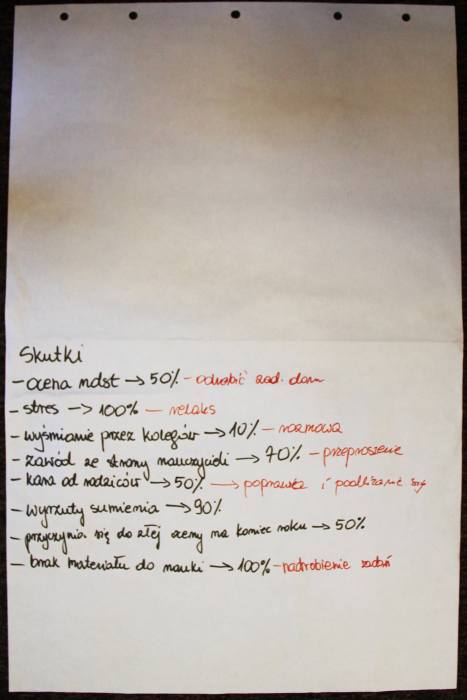 Skutki
- ocena ndst → 50% - odrobić zad. dom
- stres -> 100% - relaks
- wyśmianie przez kolegów → 10% - rozmowa
- zawód ze strony nauczycieli → 70% - przeproszenie
- kara od rodziców → 50% → poprawka i podlizanie się
- wyrzuty sumienia → 90%
- przyczynia się do złej oceny na koniec roku → 50%
- brak materiału do nauki → 100% - nadrobienie zadań